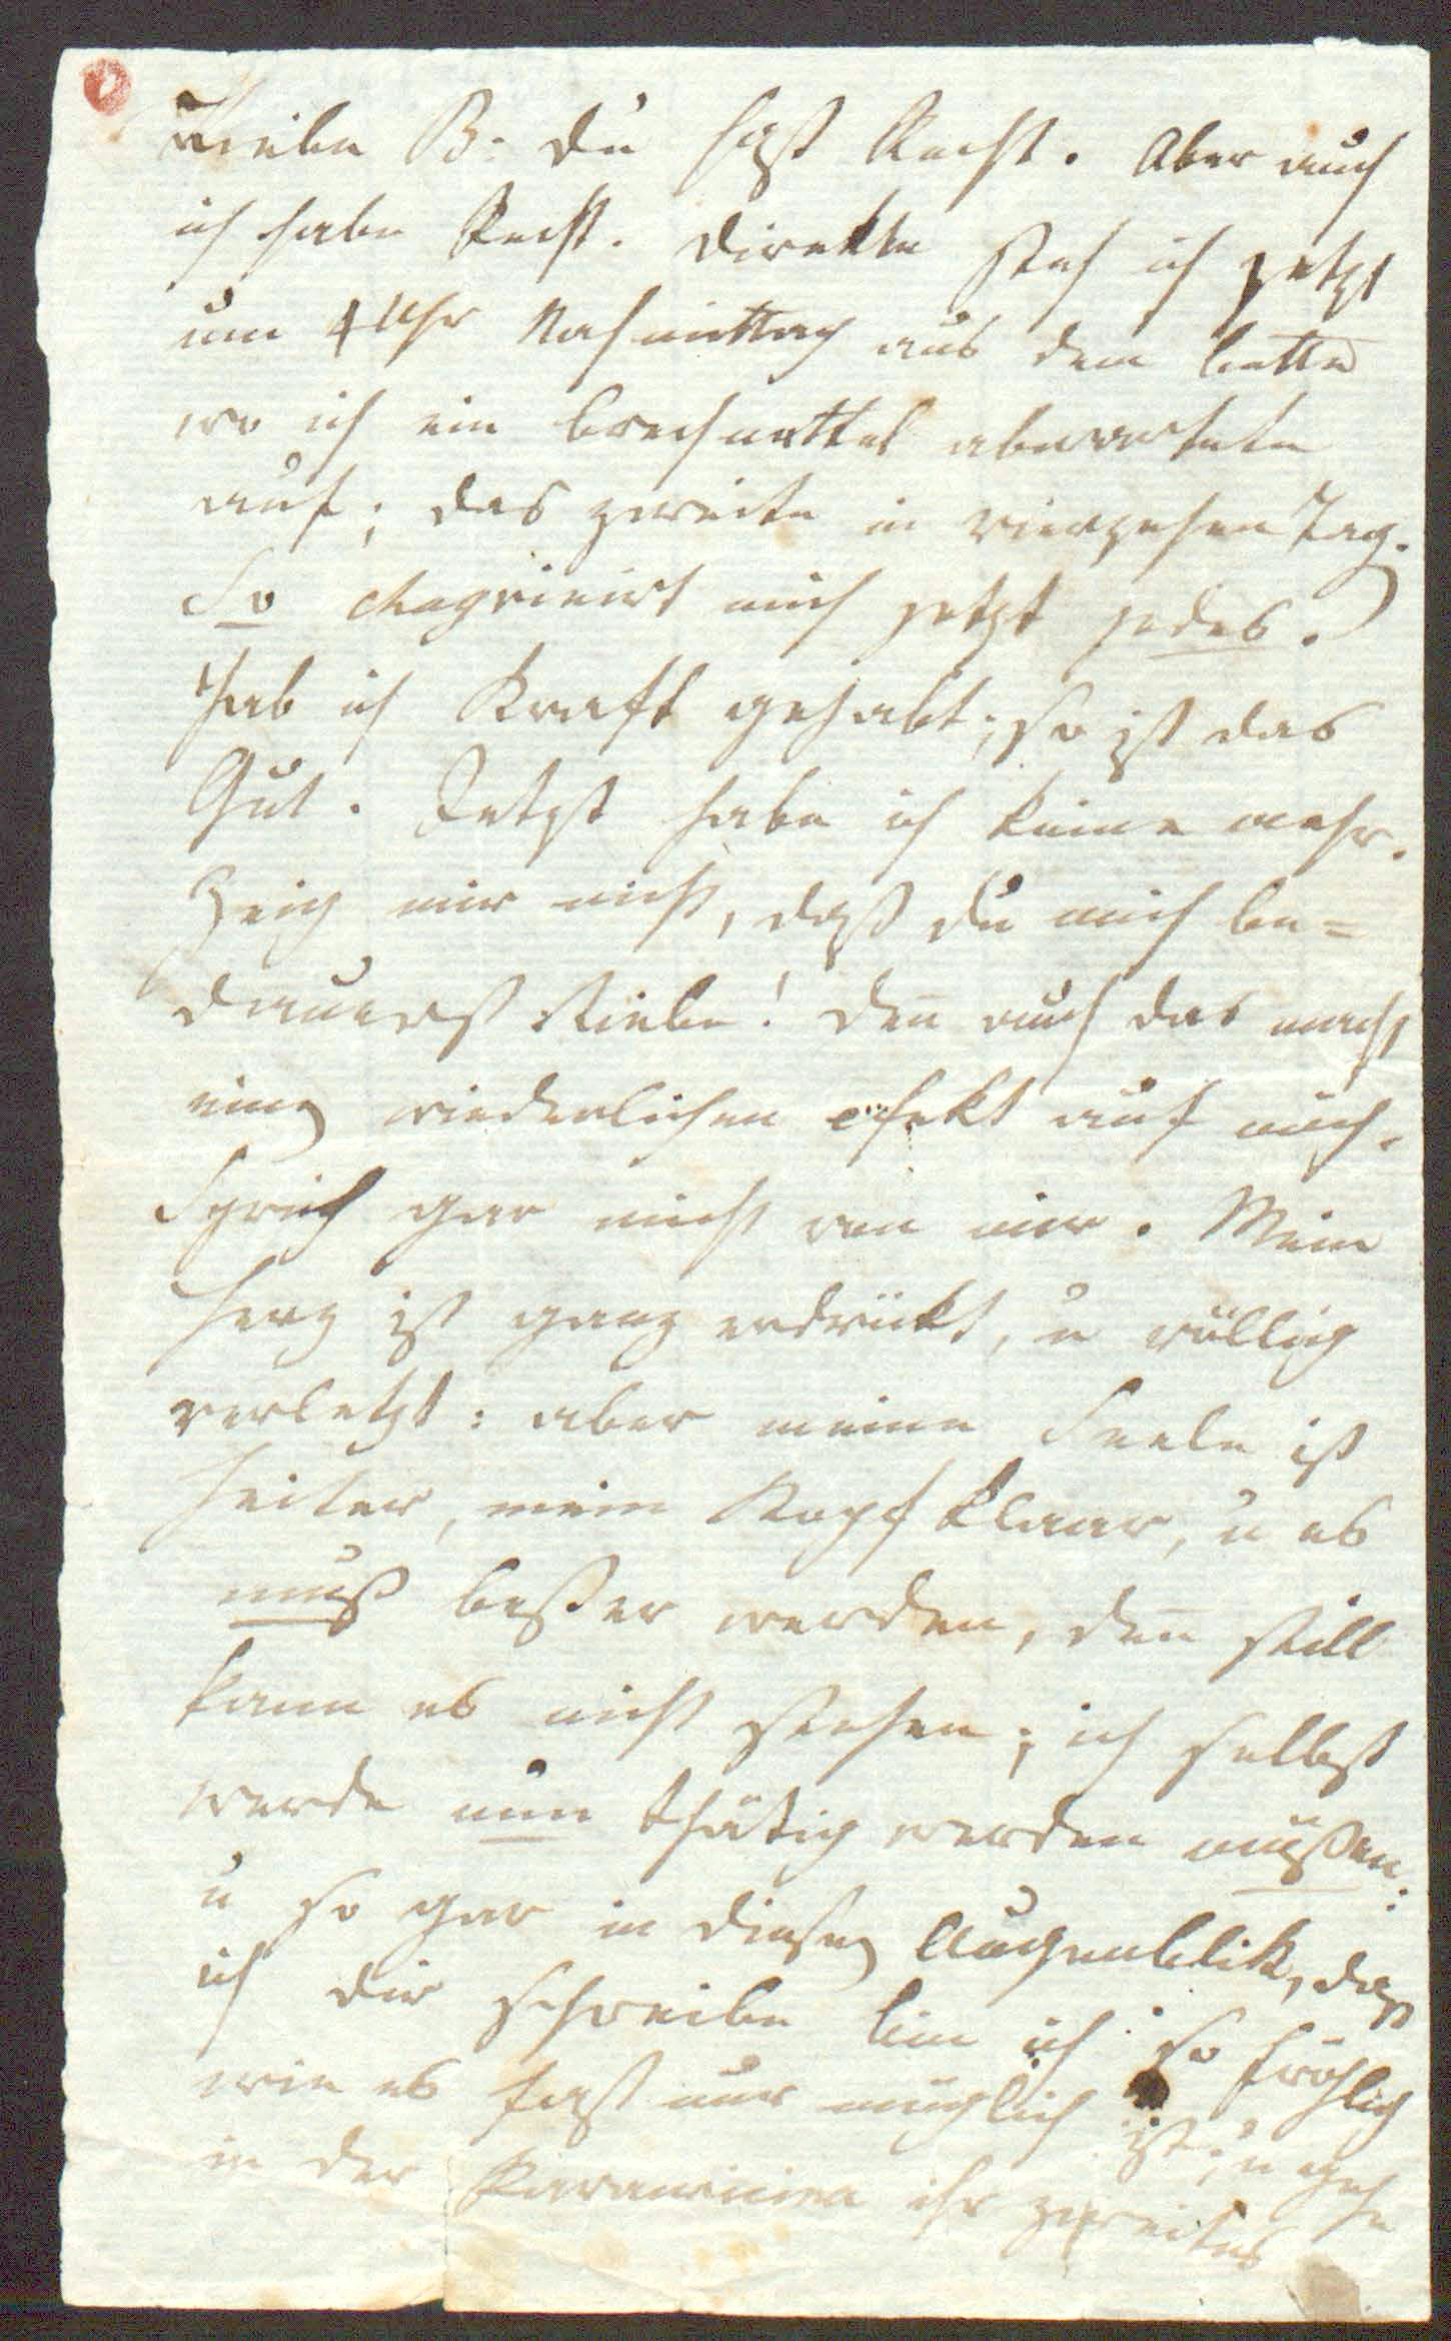 Liebe B: du hast Recht. Aber auch
ich habe Recht. Direkte steh ich jetzt
um 4 Uhr Nachmittag aus dem bette
wo ich ein brechmittel abwartete
auf; das zweite in vierzehen Tag.
So chagrinirt mich jetzt jedes.
Hab ich Kraft gehabt; so ist das
Gut. Jetzt habe ich keine mehr.
Zeig mir nicht, daß du mich be=
dauerst Liebe! den̄ auch das macht
einen wiederlichen efekt auf mich.
Sprich gar nicht von mir. Mein
Herz ist ganz erdrükt, u völlig
verletzt: aber meine Seele ist
heiter, mein Kopf klaar, u es
muß beßer werden, den̄ still
kann es nicht stehen; ich selbst
werde nun thätig werden müßen:
u so gar in diesen Augenblik, daß
ich dir schreibe bin ich so fröhlich
wie es fast nur möglich ist; u gehe
in der ihr zweites